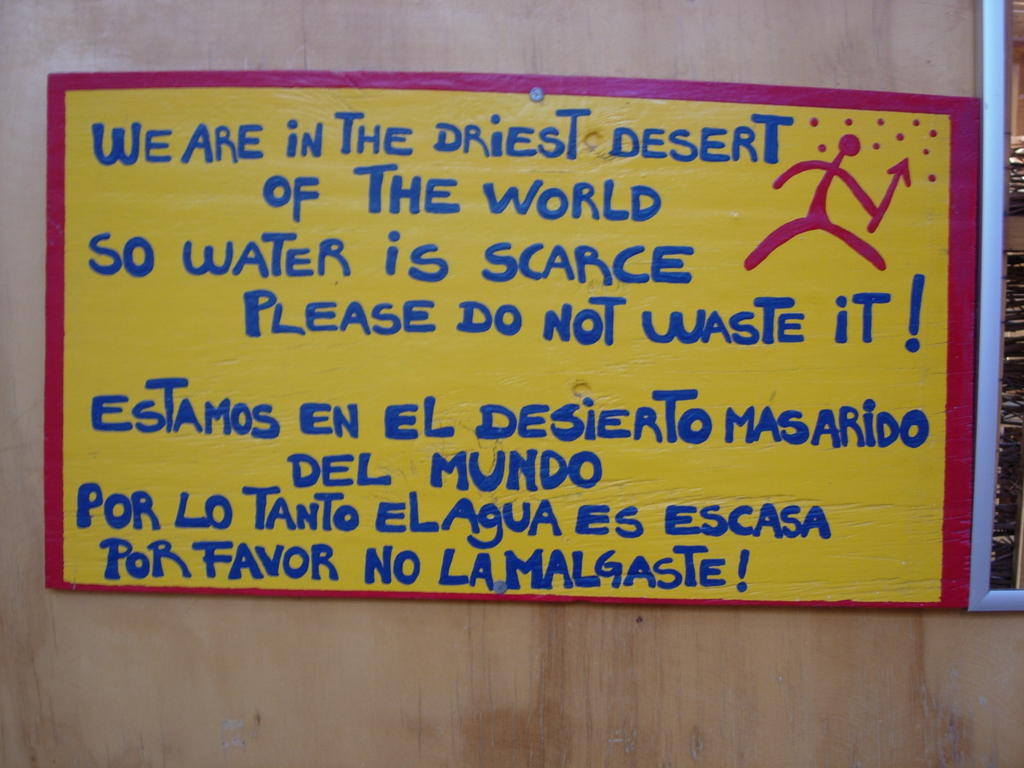 WE ARE iN THE DRiEST DESERT
OF THE WORLD
SO WATER iS SCARCE
PLEASE DO NOT WASTE iT!
ESTAMOS EN EL DESiERTO MAS ARiDO
DEL MUNDO
POR LO TANTO EL AgUA ES ESCASA
POR FAVOR NO LA MALGASTE!